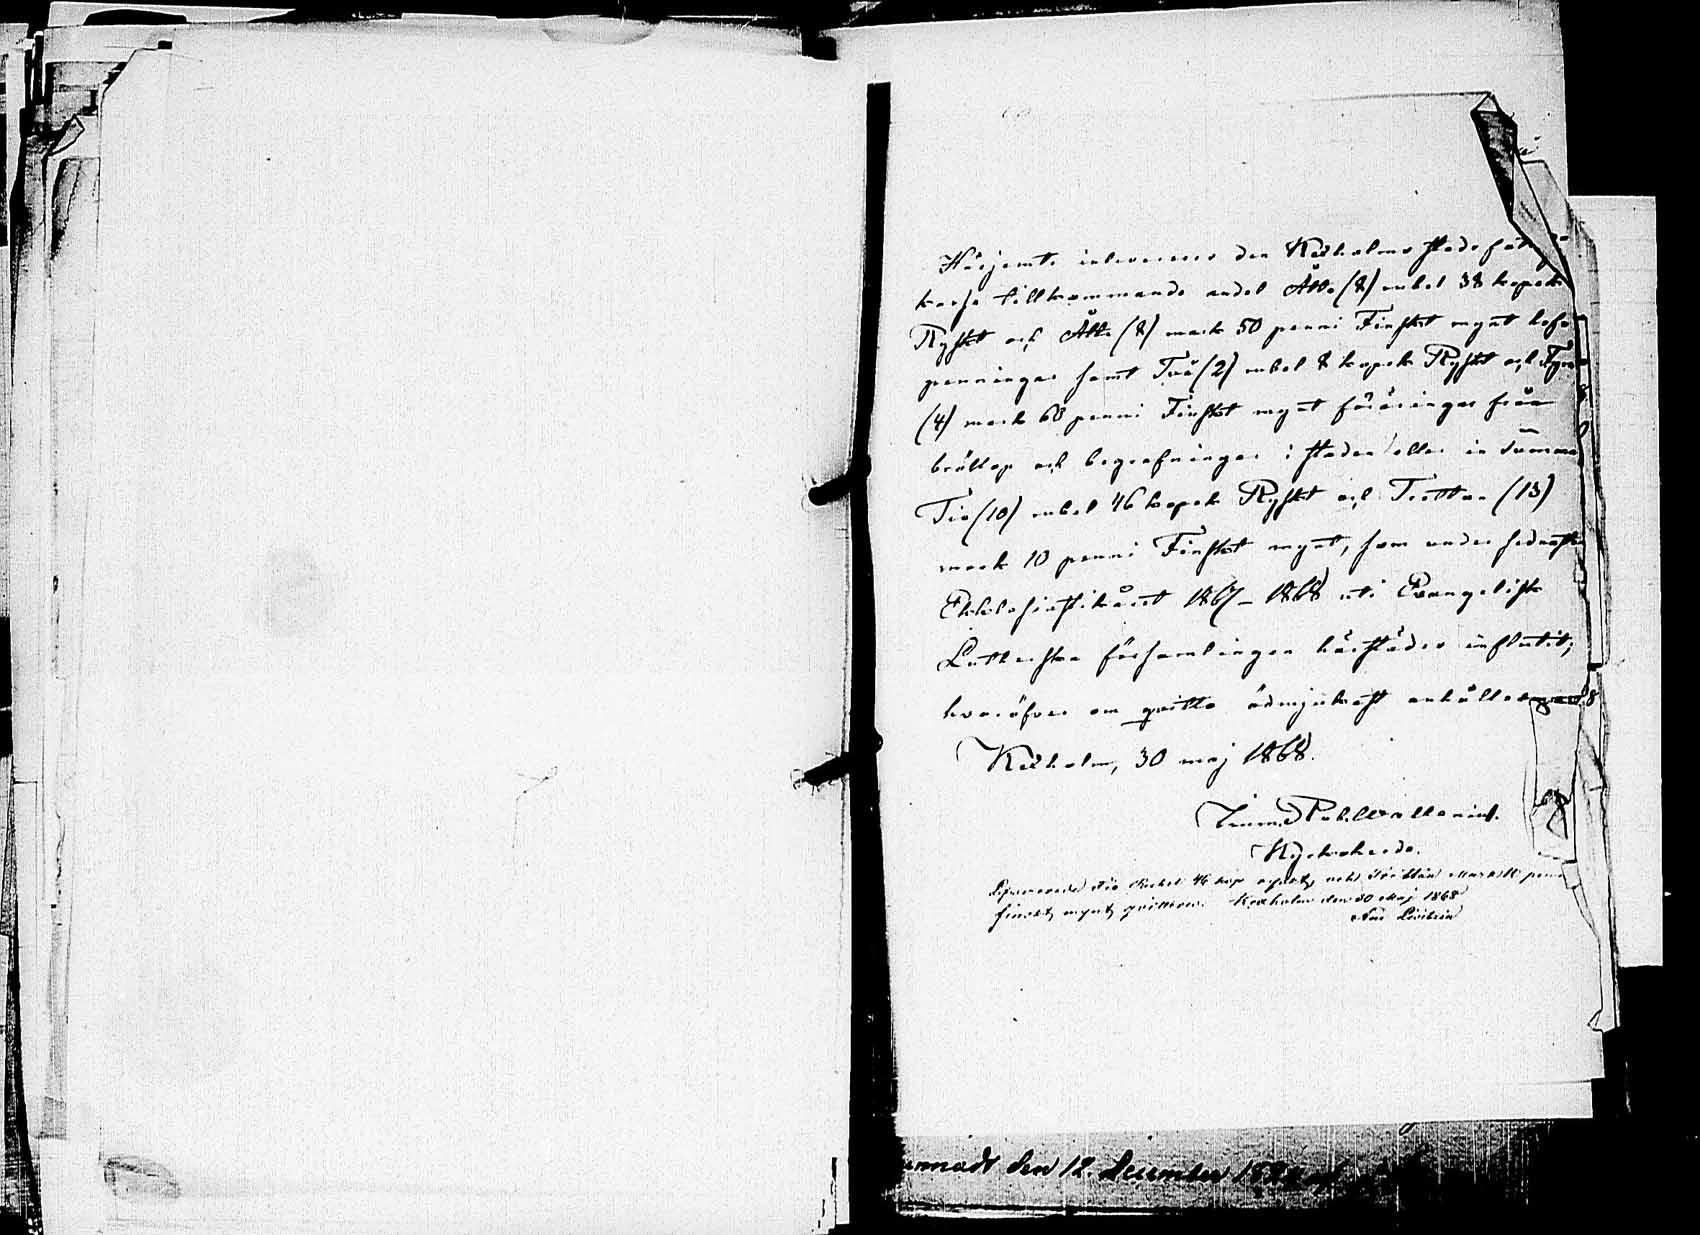 Härjemte inlevereres den Kexholms stads fattig
kassa tillkommande andel Åtta (8) rubel 38 kopek
Ryskt och Åtta (8) mark 50 penni Finskt mynt håfs
penningar samt Två (2) rubel 8 kopek Ryskt och Fyra
(4) mark 60 penni Finskt mynt föräringar från
bröllop och begrafningar i staden eller in summa
Tio (10) rubel 46 kopek Ryskt och Tretton (13)
mark 10 penni Finskt mynt, som under sednaste
Ekklesiastikåret 1867–1868 uti Evangelisk
Lutherska församlingen härstädes influtit;
hvaröfver om qvitto ödmjukast anhålles
Kexholm, 30 maj 1868.
Kyrkoherde.
Tio Rubel 46 kop ryskt och Tretton Mark 10 penni
finskt mynt qvitteras. Kexholm den 30 Maj 1868
den 12. December